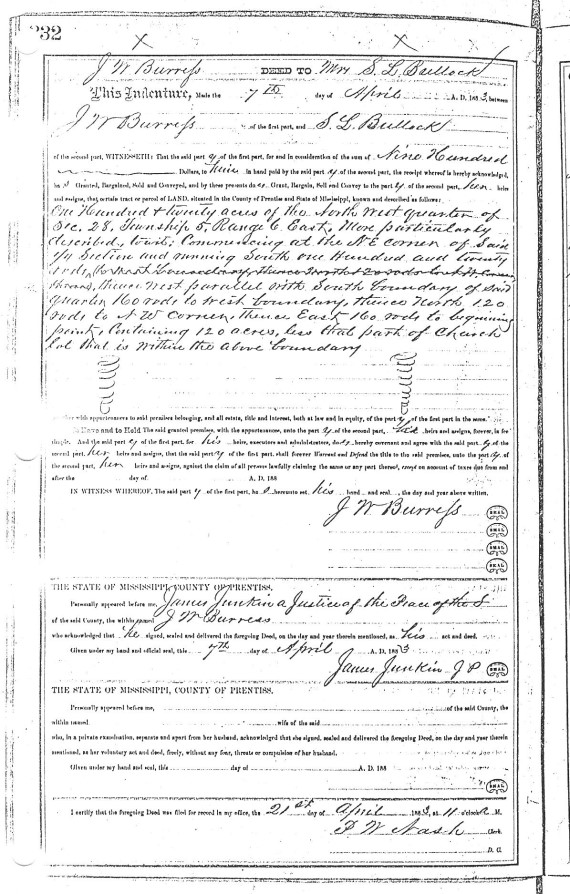 232
J W Burress DEED TO Mrs S. L. Bullock
This Indenture, Made the 7th day of April A. D. 1883, between
J W Burress of the first part, and S. L. Bullock
of the second part, WITNESSETH: That the said party of the first part, for and in consideration of the sum of Nine Hundred
Dollars, to him in hand paid by the said party of the second part, the receipt whereof is hereby acknowledged,
has Granted, Bargained, Sold and Conveyed, and by these presents does Grant, Bargain, Sell and Convey to the party of the second part, her heirs
and assigns, that certain tract or parcel of LAND, situated in the County of Prentiss and State of Mississippi, known and described as follows:
One Hundred & twenty acres of the North West quarter of
Sec. 28, Township 5, Range 6 East, More particularly
described, towit; Commencing at the NE corner of Said
1/4 Section and running South one Hundred and twenty
rods, to West boundary, thence North 120 rods to N.W. Corner
thence, thence West parallel with South boundary of Said
quarter 160 rods to West boundary, thence North 120
rods to N W Corner, thence East 160 rods to beginning
point, Containing 120 acres, less that part of Church
lot that is within the above boundary
with appurtenances to said premises belonging, and all estate, title and interest, both at law and in equity, of the party of the first part in the same.
To Have and to Hold The said granted premises, with the appurtenances, unto the party of the second part, heirs and assigns, forever, in fee
simple. And the said party of the first part for his heirs, executors and administrators, does hereby covenant and agree with the said party of the
second part, her heirs and assigns, that the said party of the first part shall forever Warrant and Defend the title to the said premises, unto the party of
the second part, her heirs and assigns, against the claim of all persons lawfully claiming the same or any part thereof, except on account of taxes due from and
after the day of A. D. 188
IN WITNESS WHEREOF, The said party of the first part, has hereunto set his hand and seal, the day and year above written.
J W Burress SEAL
SEAL
SEAL
SEAL
THE STATE OF MISSISSIPPI, COUNTY OF PRENTISS.
Personally appeared before me, James Junkin a Justice of the Peace of the
of the said County, the within named J W Burress
who acknowledged that he signed, sealed and delivered the foregoing Deed, on the day and year therein mentioned, as his act and deed.
Given under my hand and official seal, this 7th day of April A. D. 1883
James Junkin J P SEAL
THE STATE OF MISSISSIPPI, COUNTY OF PRENTISS.
Personally appeared before me, of the said County, the
within named wife of the said
who, in a private examination, separate and apart from her husband, acknowledged that she signed, sealed and delivered the foregoing Deed, on the day and year therein
mentioned, as her voluntary act and deed, freely, without any fear, threats or compulsion of her husband.
Given under my hand and seal, this day of A. D. 188
SEAL
I certify that the foregoing Deed was filed for record in my office, the 21st day of April 1883, at 11 o'clock A. M.
P W Nash Clerk.
D. C.